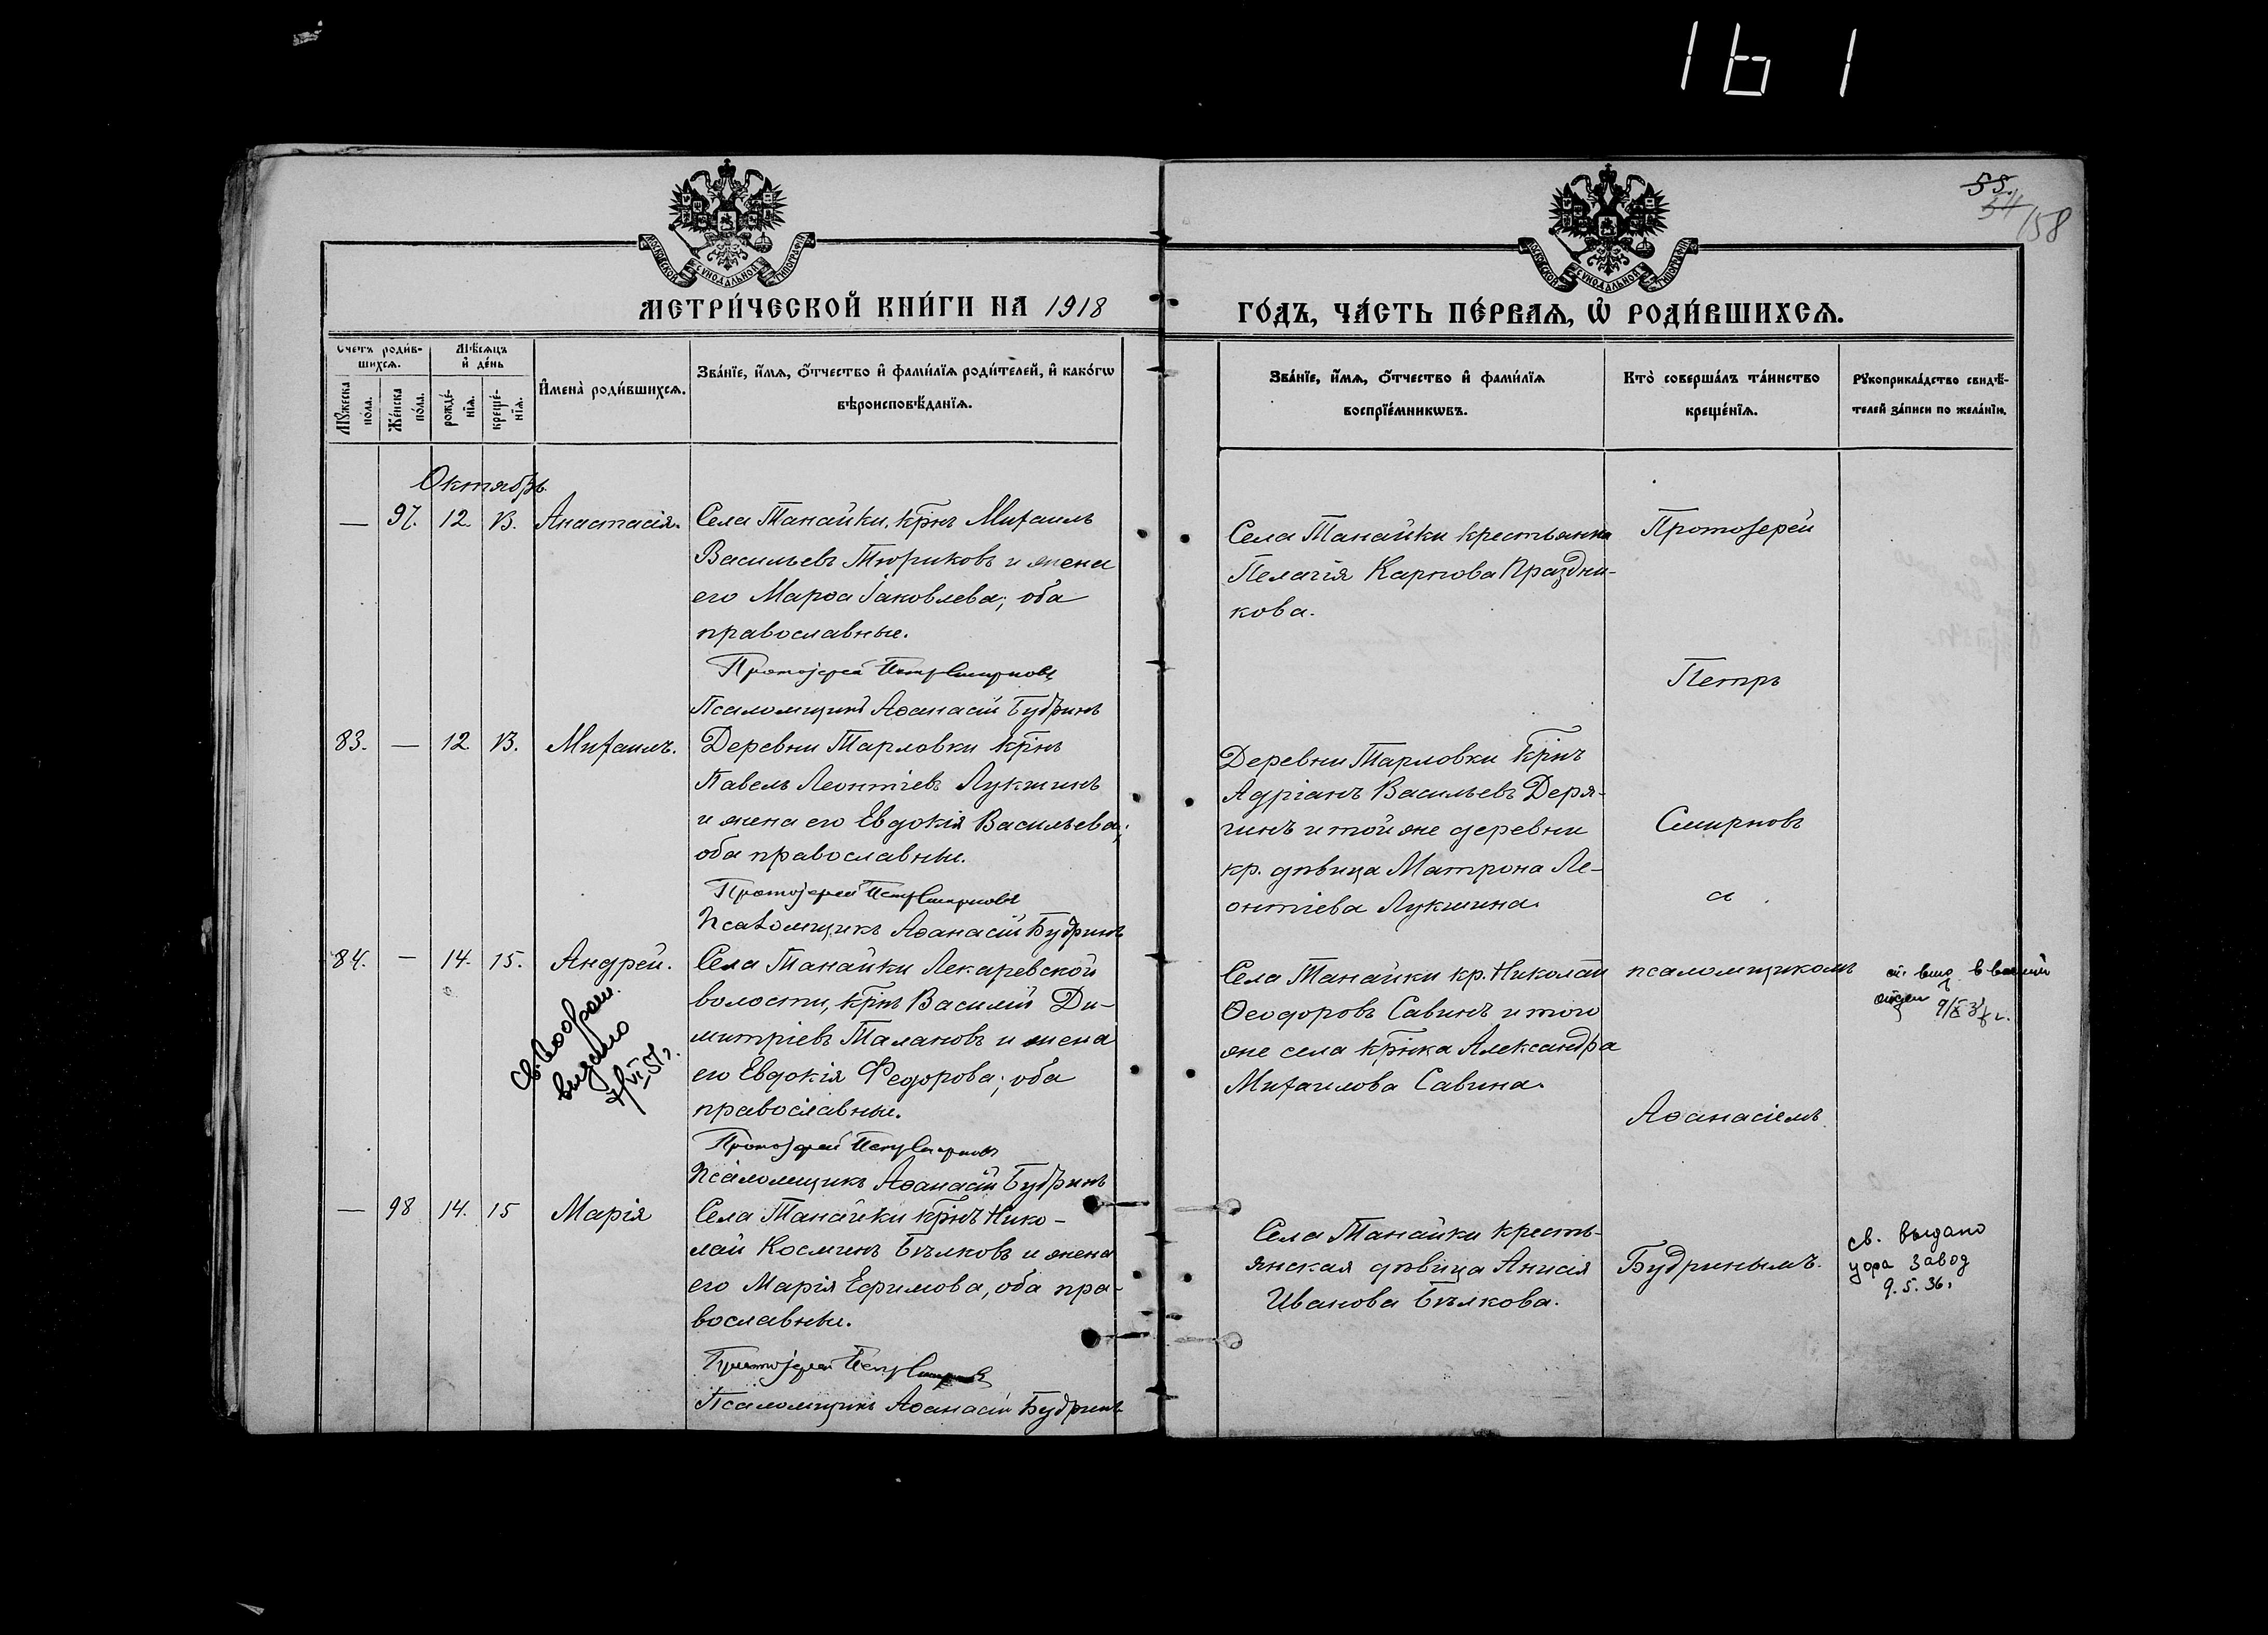 161
55.
54
158
МОСКОВСКОЙ СѴНОДАЛЬНОЙ ТИПОГРАФІИ
МОСКОВСКОЙ СѴНОДАЛЬНОЙ ТИПОГРАФІИ
МЕТРИ́ЧЕСКОЙ КНИ́ГИ НА 1918
ГО́ДЪ, ЧА́СТЬ ПЕ́РВАѦ, Ѡ҆ РОДИ́ВШИХСѦ.
Счетъ роди́в-
шихсѧ.
Мѣ́сѧцъ
и҆ де́нь
Мꙋ́жеска
по́ла.
Же́нска
по́ла.
рожде́-
нїѧ.
креще́-
нїѧ.
И҆мена̀ роди́вшихсѧ.
Зва́нїе, и҆́мѧ, ѻ҆́тчество и҆ фами́лїѧ роди́телей, и҆ како́гѡ
вѣроисповѣ́данїѧ.
Зва́нїе, и҆́мѧ, ѻ҆́тчество и҆ фами́лїѧ
воспрїе́мникѡвъ.
Кто̀ соверша́лъ та́инство
креще́нїѧ.
Рꙋкоприкла́дство свидѣ́-
телей за́писи по жела́нїю.
Октябрь.
— 97. 12. 13. Анастасія.
Села Танайки, крнъ Михаилъ
Васильевъ Тюриковъ и жена
его Марѳа Іаковлева; оба
православные.
Протоіерей Петръ Смирновъ
Псаломщикъ Аѳанасій Будринъ
Села Танайки крестьянка
Пелагія Карпова Праздни-
кова.
Протоіерей
Петръ
83. — 12. 13. Михаилъ.
Деревни Тарловки крнъ
Павелъ Леонтіевъ Лукшинъ
и жена его Евдокія Васильева;
оба православные.
Протоіерей Петръ Смирновъ
Псаломщикъ Аѳанасій Будринъ
Деревни Тарловки крнъ
Адріанъ Васильевъ Деря-
гинъ и той же деревни
кр. дѣвица Матрона Ле-
онтіева Лукшина.
Смирновъ
с
84. — 14. 15. Андрей.
св.
выдано
VI 51 г.
Села Танайки Лекаревской
волости, крнъ Василій Ди-
митріевъ Талановъ и жена
его Евдокія Федорова; оба
православные.
Протоіерей Петръ Смирновъ
Псаломщикъ Аѳанасій Будринъ
Села Танайки кр. Николай
Ѳеодоровъ Савинъ и того
же села крнка Александра
Михаилова Савина.
псаломщикомъ
Аѳанасіемъ
— 98 14. 15 Марія
Села Танайки крнъ Нико-
лай Косминъ Бѣлковъ и жена
его Марія Ефимова, оба пра-
вославные.
Протоіерей Петръ Смирновъ
Псаломщикъ Аѳанасій Будринъ
Села Танайки кресть-
янская дѣвица Анисія
Иванова Бѣлкова.
Будринымъ.
св. выдано
уфа завод
9.5.36,